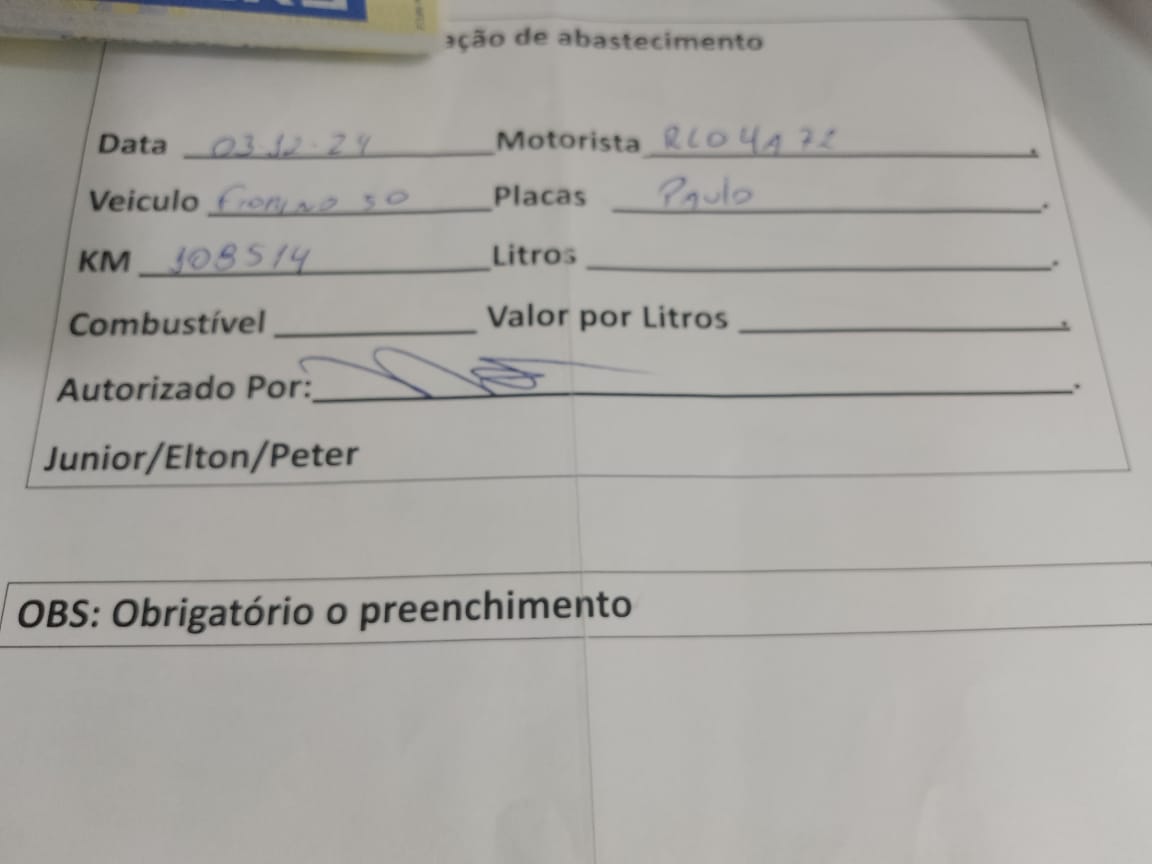 ação de abastecimento
Data 03.12.24 Motorista RLO4A72
Veiculo Fiorino 50 Placas Paulo
KM 108514 Litros
Combustível Valor por Litros
Autorizado Por:
Junior/Elton/Peter
OBS: Obrigatório o preenchimento